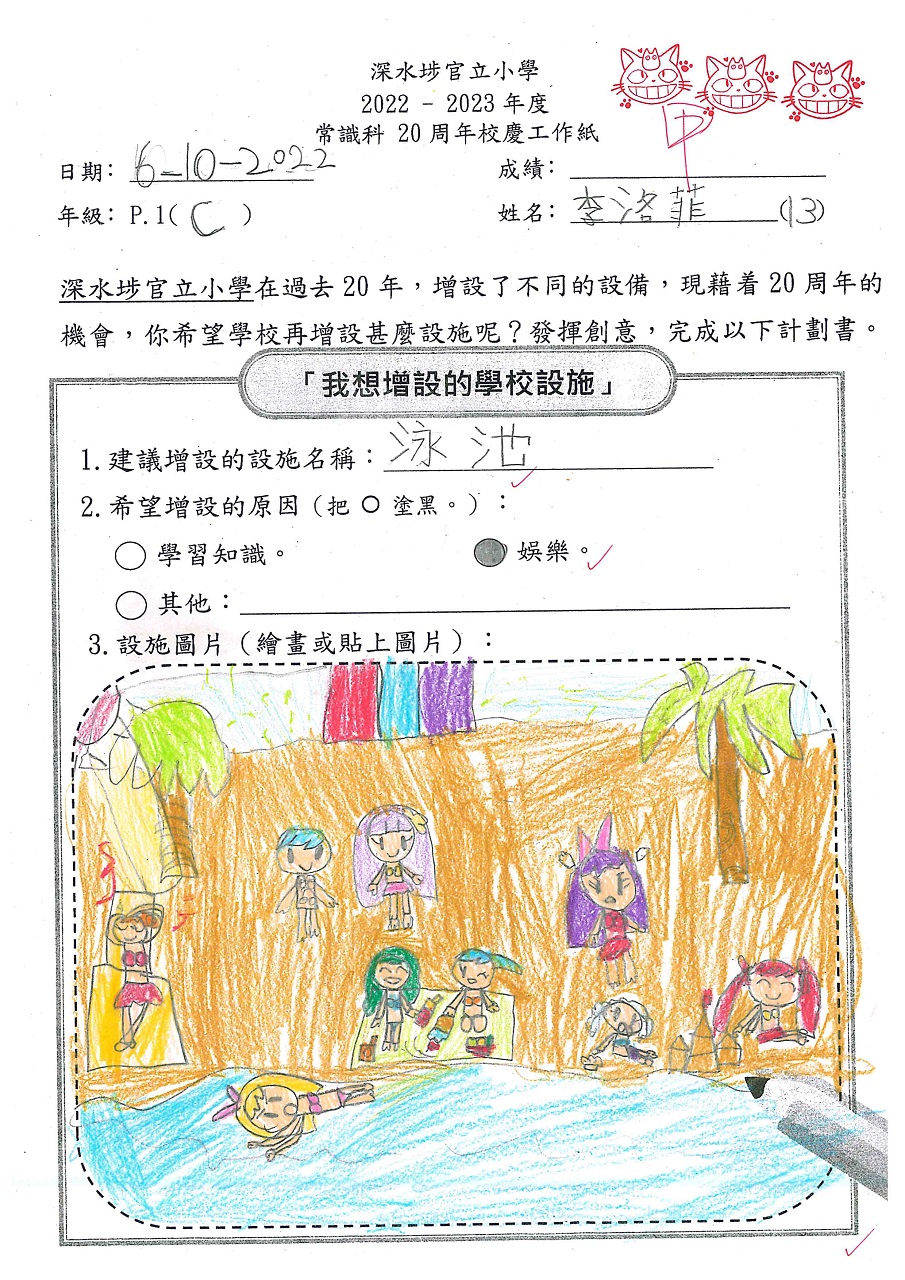 深水埗官立小學
2022 - 2023 年度
常識科 20 周年校慶工作紙
甲
日期: 6-10-2022
成績:
年級: P.1( C )
姓名: 李洛菲 (13)
深水埗官立小學在過去 20 年，增設了不同的設備，現藉着 20 周年的
機會，你希望學校再增設甚麼設施呢？發揮創意，完成以下計劃書。
「我想增設的學校設施」
1. 建議增設的設施名稱：泳池
2. 希望增設的原因（把 O 塗黑。）：
學習知識。
娛樂。
其他：
3. 設施圖片（繪畫或貼上圖片）：